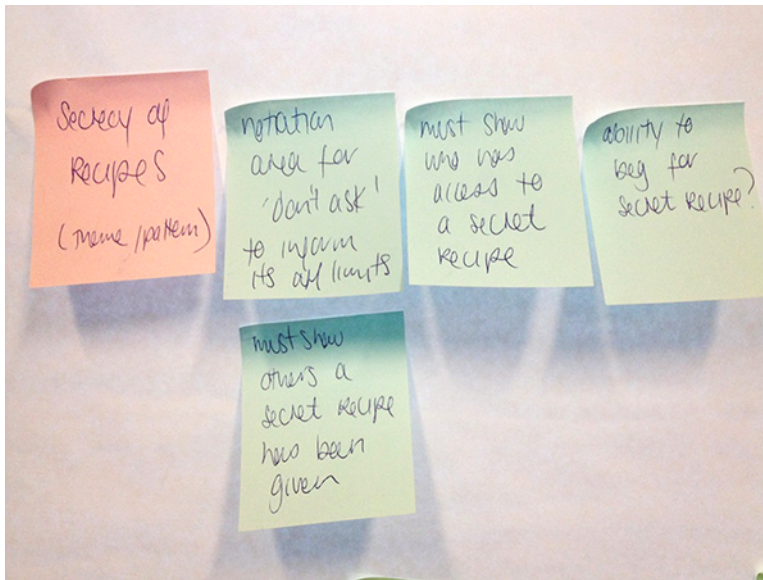 Secrecy of
Recipes
(theme/pattern)
notation
area for
'don't ask'
to inform
its off limits
must show
who has
access to
a secret
recipe
ability to
beg for
secret recipe?
must show
others a
secret recipe
has been
given